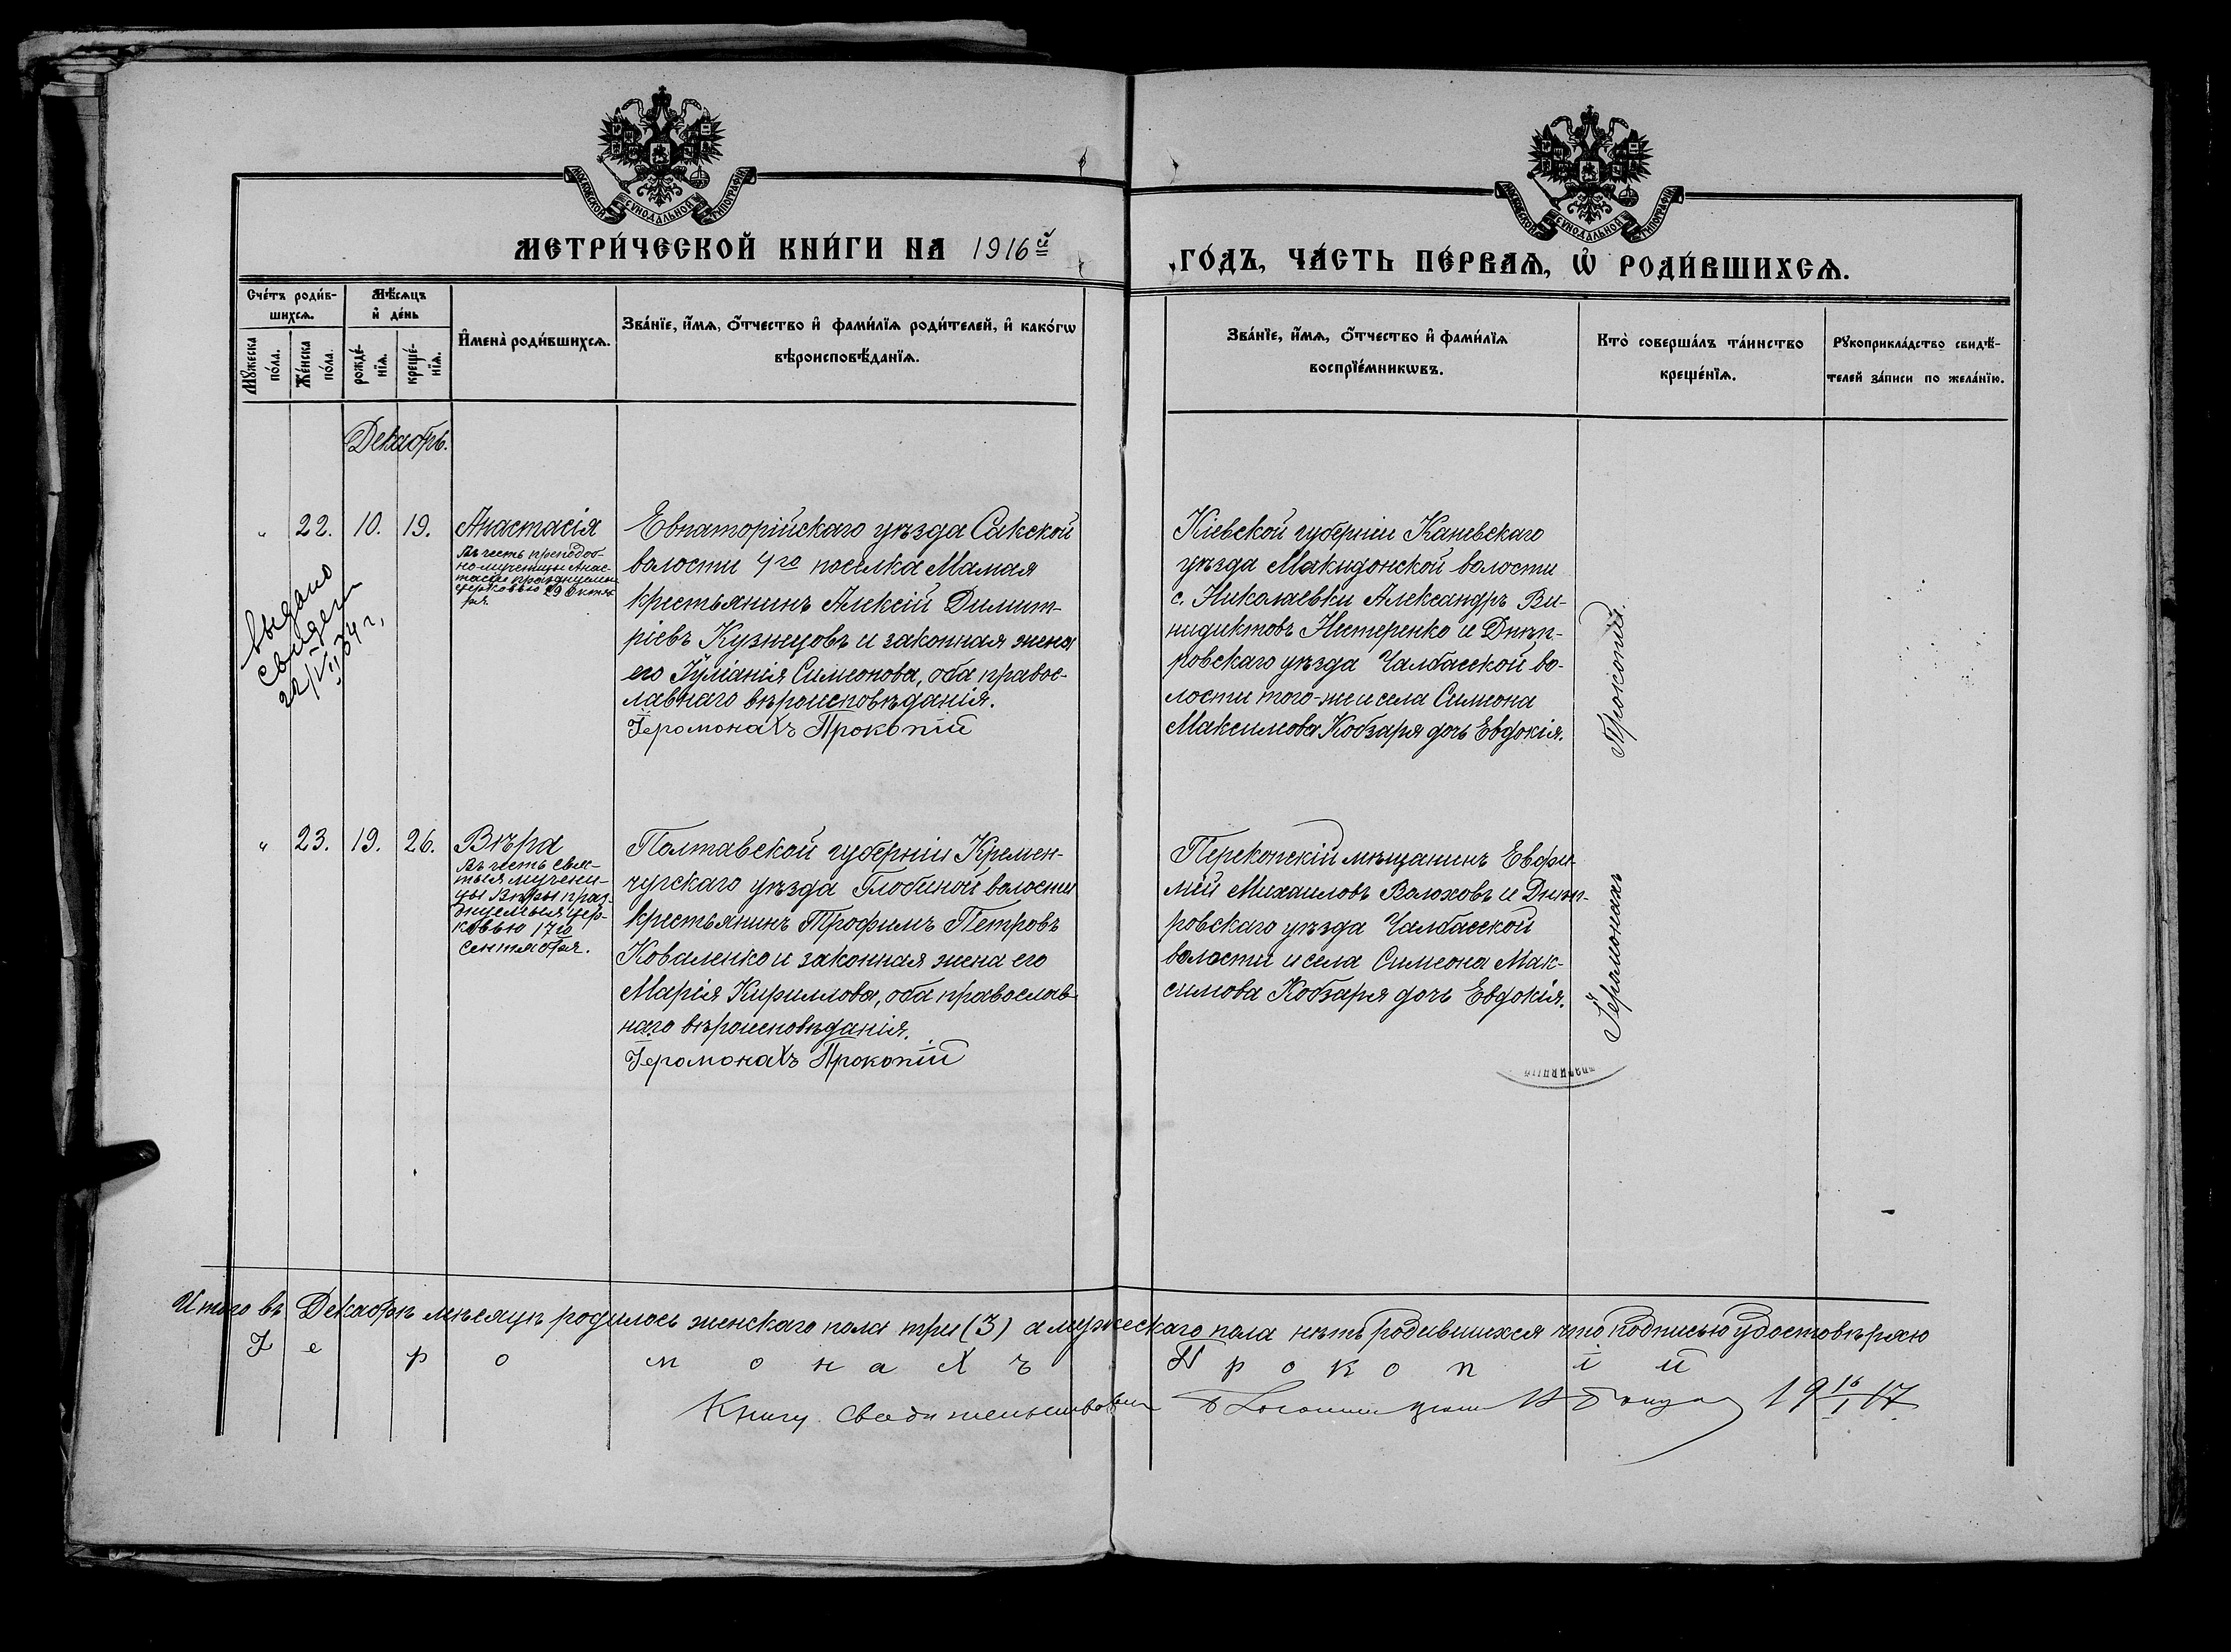 МОСКОВСКОЙ СѴНОДАЛЬНОЙ ТИПОГРАФІИ
МОСКОВСКОЙ СѴНОДАЛЬНОЙ ТИПОГРАФІИ
МЕТРИ́ЧЕСКОЙ КНИ́ГИ НА 1916й
ГО́ДЪ, ЧА́СТЬ ПЕ́РВАѦ, Ѡ҆ РОДИ́ВШИХСѦ.
Сче́тъ роди́в-
шихсѧ.
Мѣ́сѧцъ
и҆ де́нь
Мꙋ́жеска
по́ла.
Же́нска
по́ла.
рожде́-
нїѧ.
креще́-
нїѧ.
И҆мена̀ роди́вшихсѧ.
Зва́нїе, и҆́мѧ, ѻ҆́тчество и҆ фами́лїѧ роди́телей, и҆ како́гѡ
вѣроисповѣ́данїѧ.
Зва́нїе, и҆́мѧ, ѻ҆́тчество и҆ фами́лїѧ
воспрїе́мникѡвъ.
Кто̀ соверша́лъ та́инство
креще́нїѧ.
Рꙋкоприкла́дство свидѣ́-
телей за́писи по жела́нїю.
Декабрь.
" 22. 10. 19. Анастасія
Въ честь преподоб-
номученицы Анас-
тасіи празднуемыя
церковью 29 Октяб
ря.
выдано
свидет
22/VII 34 г.
Евпаторійскаго уѣзда Сакской
волости 4го поселка Мамая
крестьянинъ Алексій Димит-
ріевъ Кузнецовъ и законная жена
его Іуліанія Симеонова, оба правос-
лавнаго вѣроисповѣданія.
Іеромонахъ Прокопій
Кіевской губерніи Каневскаго
уѣзда Македонской волости
с. Николаевки Александръ Ви-
нидиктовъ Нестеренко и Днѣп-
ровскаго уѣзда Чалбасской во-
лости того-же и села Симеона
Максимова Кобзаря дочь Евдокія.
" 23. 19. 26. Вѣра
Въ честь свя-
тыя мучени-
цы Вѣры праз-
днуемыя цер-
ковью 17го
Сентября.
Полтавской губерніи Кремен-
чугскаго уѣзда Глобиной волости
крестьянинъ Трофимъ Петровъ
Коваленко и законная жена его
Марія Кириллова, оба православ-
наго вѣроисповѣданія.
Іеромонахъ Прокопій
Перекопскій мѣщанинъ Евфи-
мій Михаиловъ Волоховъ и Днѣп-
ровскаго уѣзда Чалбасской
волости и села Симеона Мак-
симова Кобзаря дочь Евдокія.
Іеромонахъ Прокопій.
Итого въ Декабрѣ мѣсяцѣ родилось женскаго пола три (3) а мужескаго пола нѣтъ родившихся что подписью удостовѣряю
Іеромонахъ Прокопій
Книгу свидетельствовал
19 16/I 17